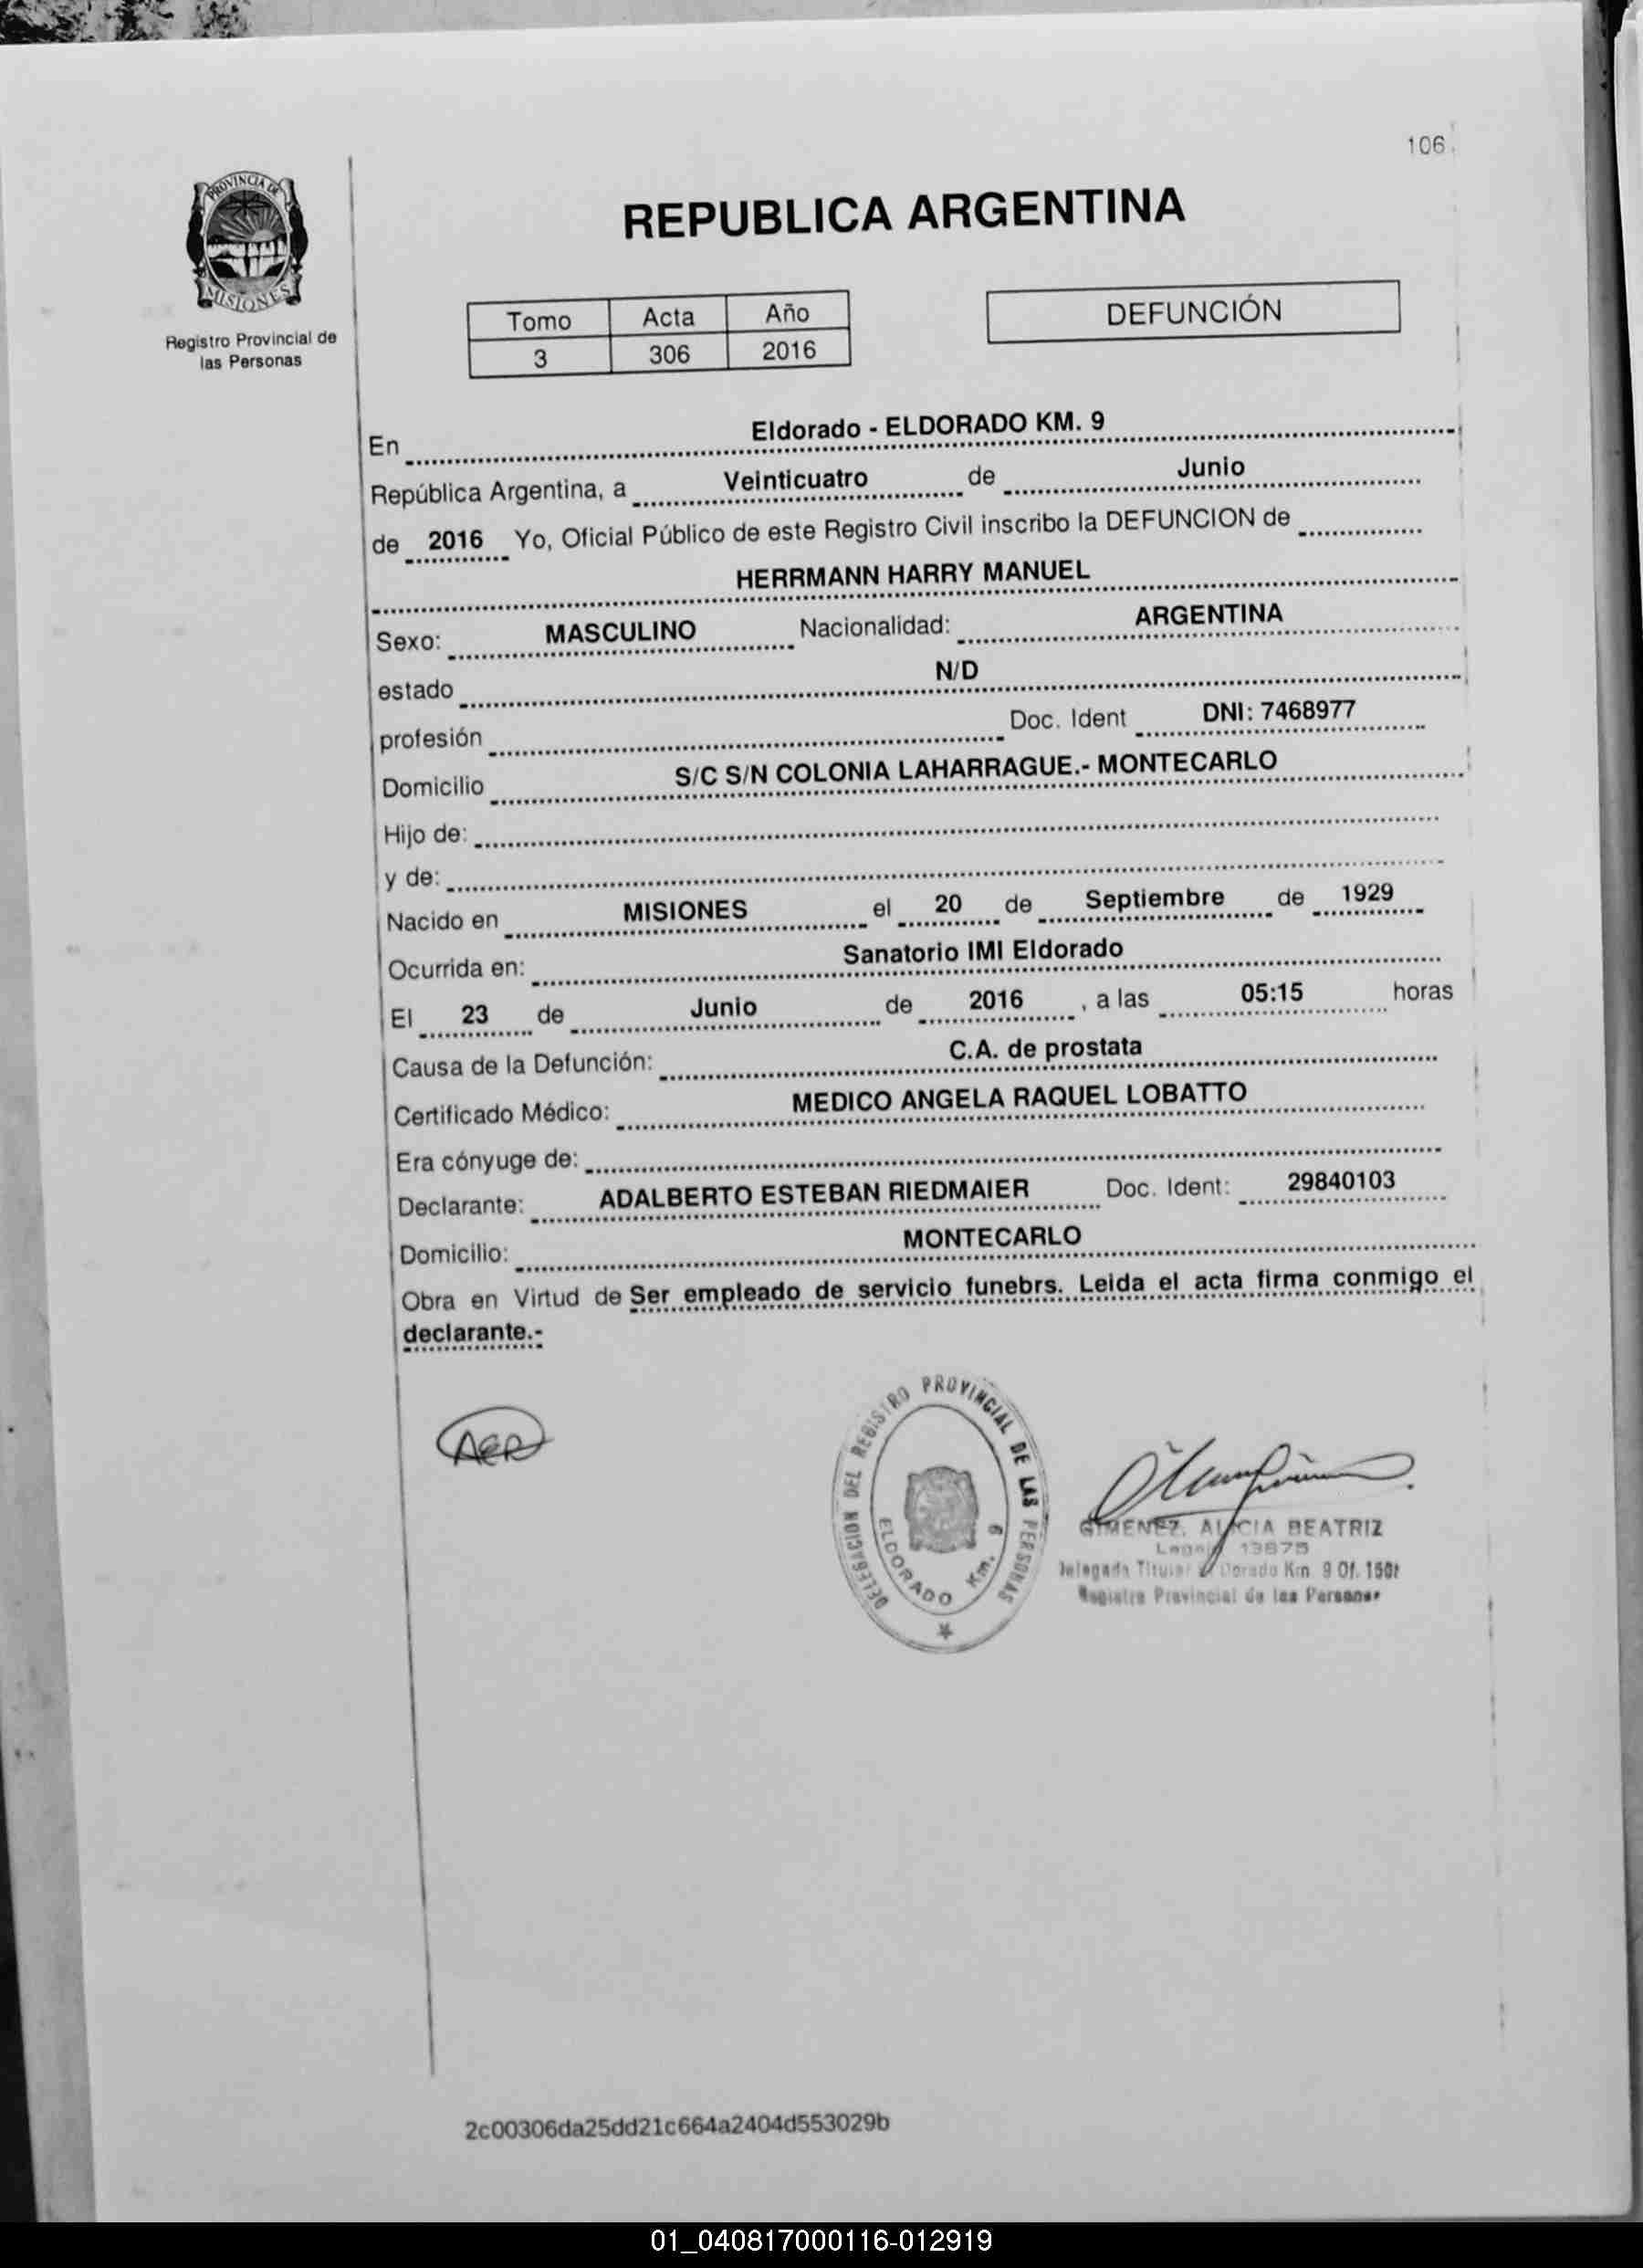 106
PROVINCIA DE
MISIONES
Registro Provincial de
las Personas
REPUBLICA ARGENTINA
Tomo Acta Año
3 306 2016
DEFUNCIÓN
En Eldorado - ELDORADO KM. 9
República Argentina, a Veinticuatro de Junio
de 2016 Yo, Oficial Público de este Registro Civil inscribo la DEFUNCION de
HERRMANN HARRY MANUEL
Sexo: MASCULINO Nacionalidad: ARGENTINA
estado N/D
profesión Doc. Ident DNI: 7468977
Domicilio S/C S/N COLONIA LAHARRAGUE.- MONTECARLO
Hijo de:
y de:
Nacido en MISIONES el 20 de Septiembre de 1929
Ocurrida en: Sanatorio IMI Eldorado
El 23 de Junio de 2016 , a las 05:15 horas
Causa de la Defunción: C.A. de prostata
Certificado Médico: MEDICO ANGELA RAQUEL LOBATTO
Era cónyuge de:
Declarante: ADALBERTO ESTEBAN RIEDMAIER Doc. Ident: 29840103
Domicilio: MONTECARLO
Obra en Virtud de Ser empleado de servicio funebrs. Leida el acta firma conmigo el
declarante.-
AER
DELEGACION DEL REGISTRO PROVINCIAL DE LAS PERSONAS
ELDORADO Km. 9
GIMENEZ, ALICIA BEATRIZ
13875
Titular Dorado Km 9 Of.
Registro Provincial de las Personas
2c00306da25dd21c664a2404d553029b
01_040817000116-012919